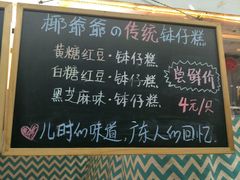 椰爷爷の传统钵仔糕
黄糖红豆·钵仔糕
白糖红豆·钵仔糕
黑芝麻味·钵仔糕
尝鲜价
4元/只
儿时的味道,广东人的回忆。